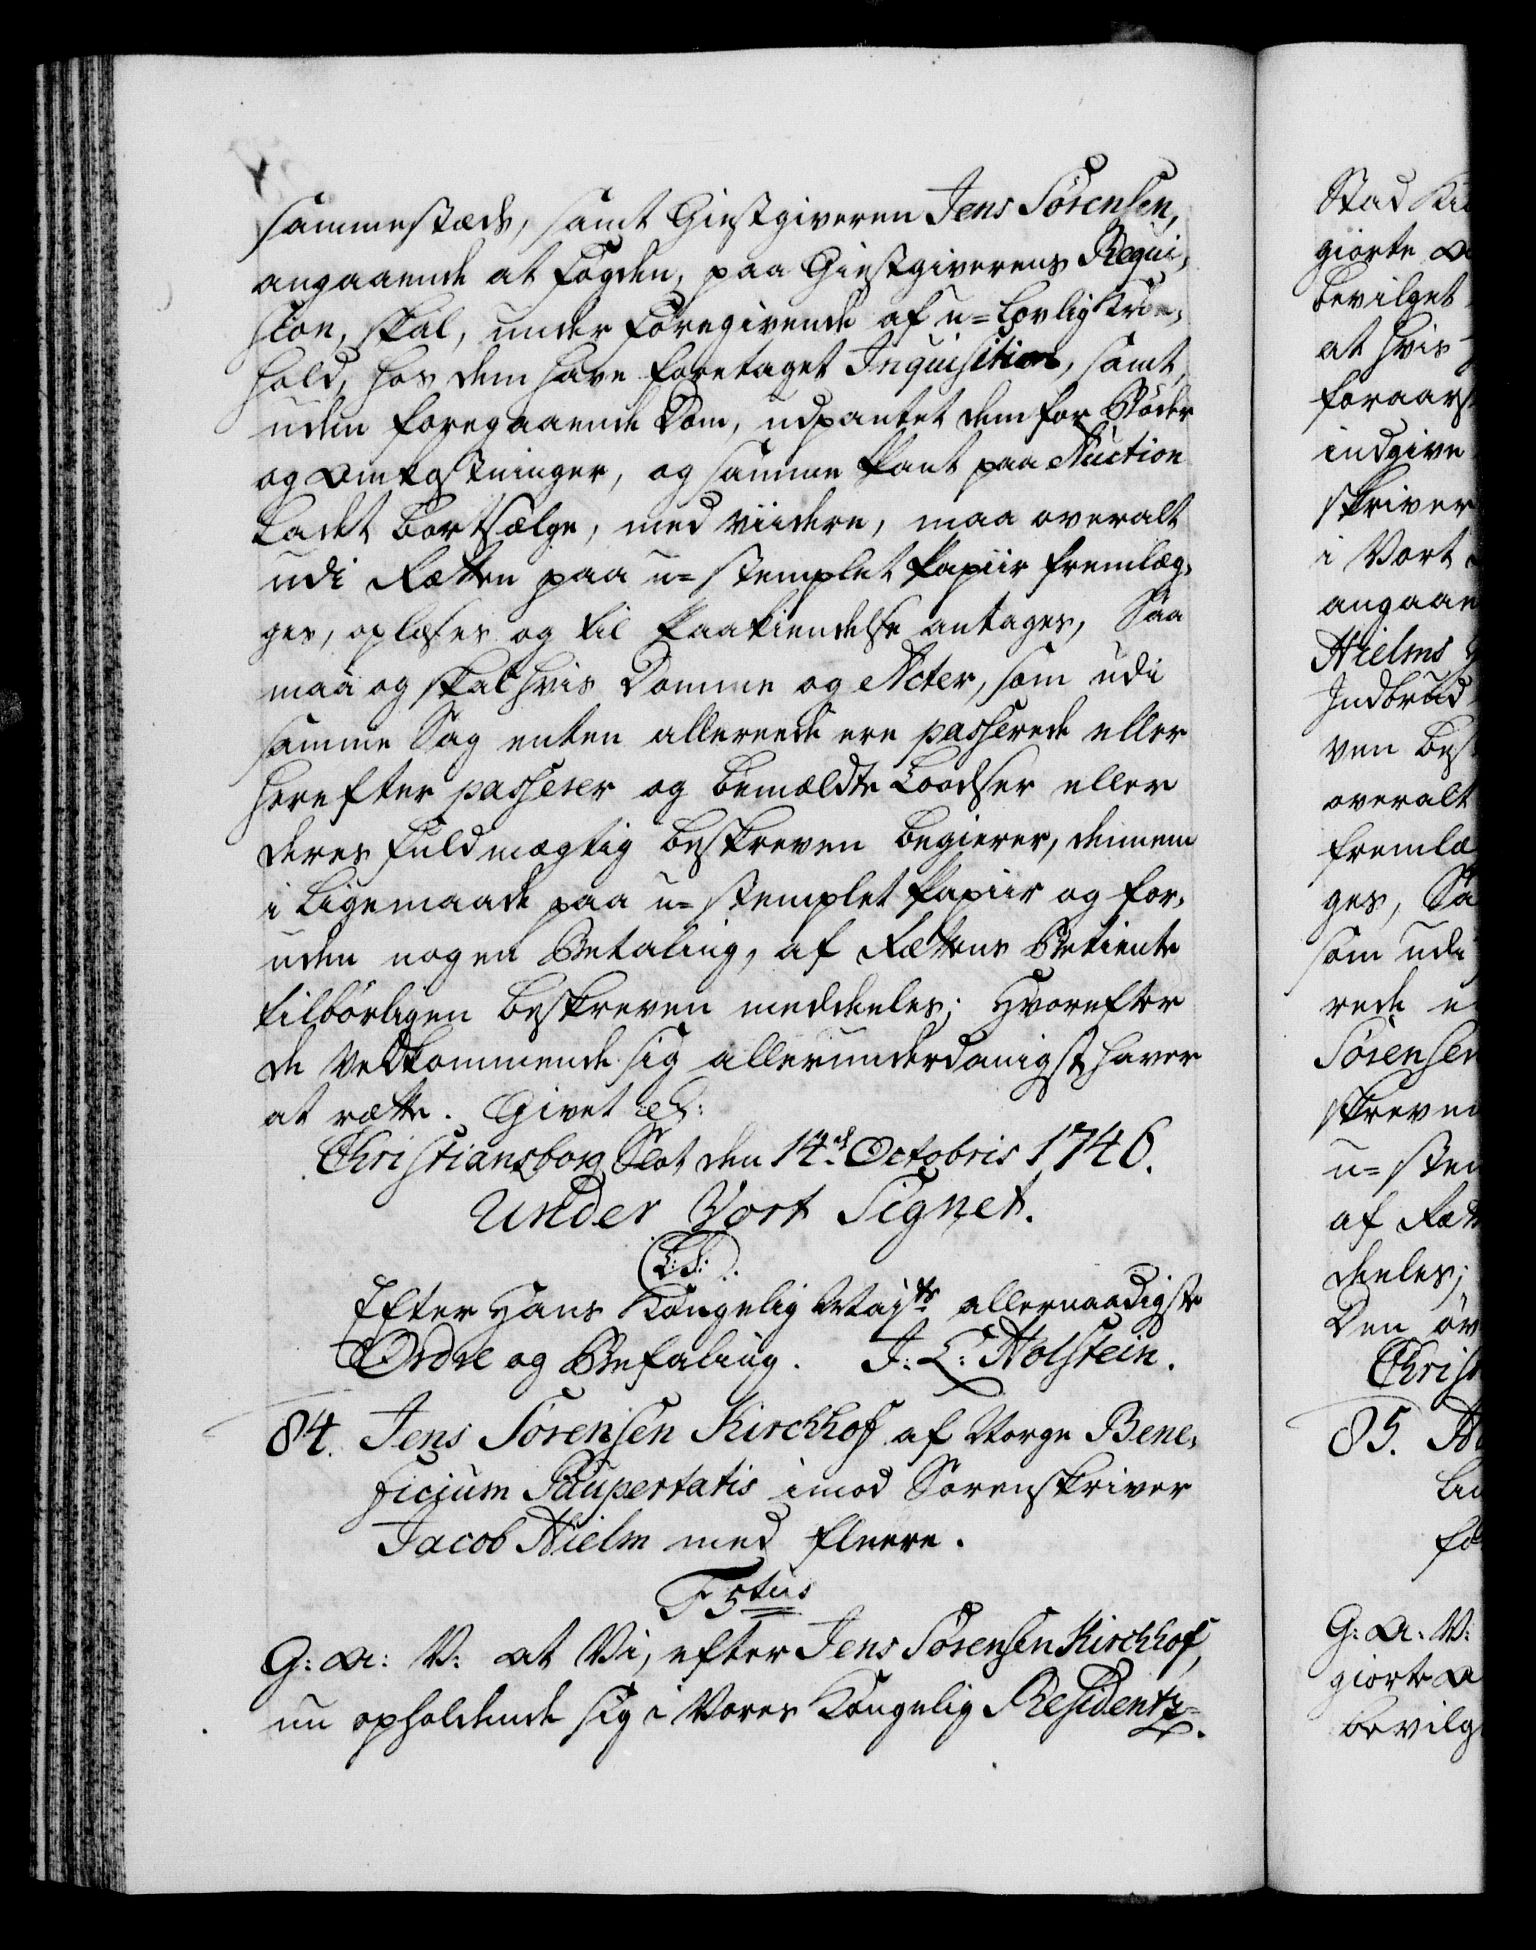 sammestæds, samt Giestgiveren Jens Sörensen,
angaaende at Fogden, paa Giestgiverens Requi-
sion, skal, under Foregivende af u-lovlig Kroe-
hold, hos dem have foretaget Inquisition, samt,
uden foregaaende Dom, udpantet dem for Bøder
og Omkostninger, og samme Pant paa Auction
ladet bortsælge, med viidere, maa overalt
udi Rætten paa u-stemplet Papiir fremlæg-
ges, oplæses og til Paakiendelse antages, Saa
maa og skal hvis Domme og Acter, som udi
samme Sag enten allereede ere passerede eller
herefter passerer og bemældte Loodser eller
deres Fuldmægtig beskreven begierer, dennem
i ligemaade paa u-stemplet Papiir og for-
uden nogen Betaling, af Rættens Betiente
tilbörligen beskreven meddeeles; Hvorefter
de Vedkommende sig allerunderdanigst haver
at rætte. Givet etc:
Christiansborg Slot den 14.de Octobris 1746.
Under Vort Signet.
(L.S.)
Efter Hans Kongelig Mayts allernaadigste
Ordre og Befaling. J: L: Holstein.
84. Jens Sörensen Kirchhof af Norge Bene-
ficium Paupertatis imod Sorenskriver
Jacob Hielm med fleere.
F 5tus
G: A: V: at Vi, efter Jens Sörensen Kirchhof,
nu opholdende sig i Vores Kongelig Residentz-
Stad
giorte
bevilget
at hvis
foraars
indgive
skriver
i Vort
angaaen
Hielms
Indbrud
ven bes
overalt
fremlæ
ges, Sa
som udi
rede e
Sörensen
skreven
u-stem
af Ræt
deeles;
Den öv
Christ
85.
G: A: V:
giorte A
bevilg